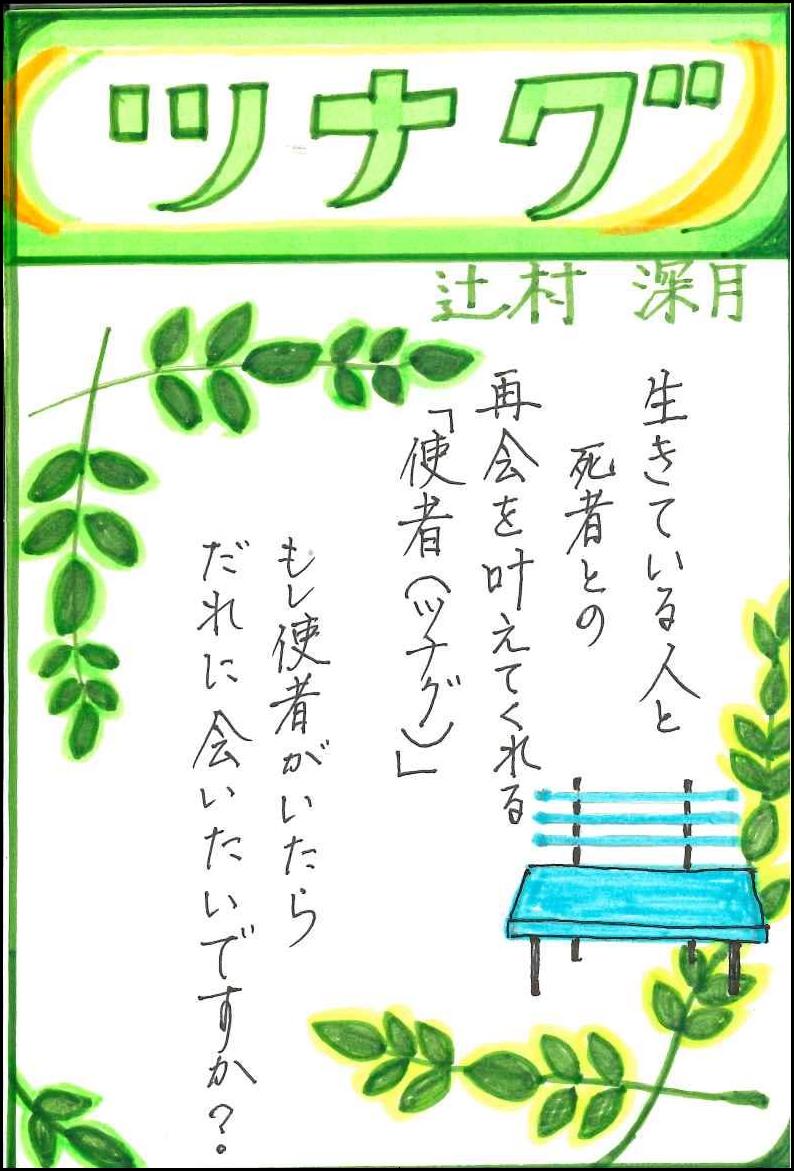 ツナグ
辻村 深月
生きている人と
死者との
再会を叶えてくれる
「使者(ツナグ)」
もし使者がいたら
だれに会いたいですか?